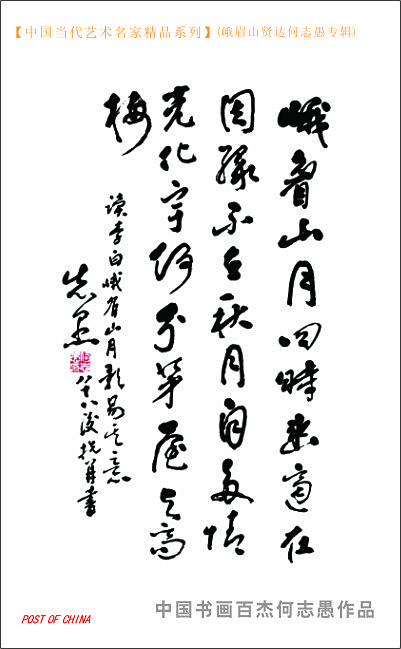 【中国当代艺术名家精品系列】(峨眉山贤达何志愚专辑)
峨眉山月四時幽適在
因緣不秋月自多情
光化宇何分第高
梅
读李白峨眉山月歌易其意
志愚
POST OF CHINA
中国书画百杰何志愚作品